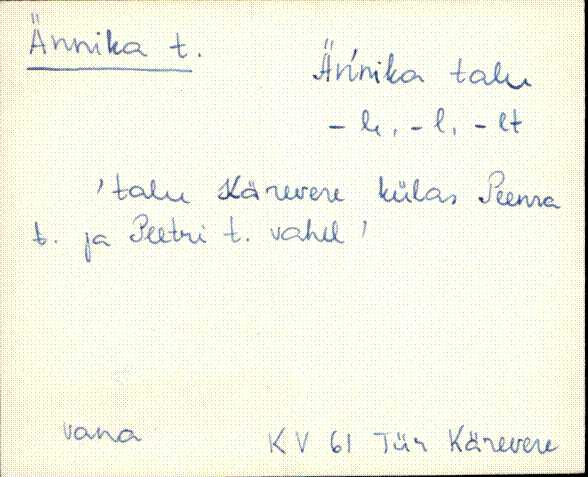 Ännika t.
Äńnika talu
- le, - l, - lt
'talu Kärevere külas Peenra
t. ja Peetri t. vahel'
vana
KV 61 Tür Kärevere